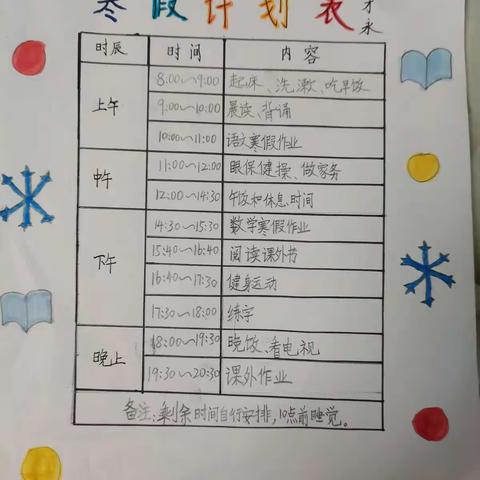 寒假计划表
才
永
时辰 时间 内容
上午 8:00~9:00 起床、洗漱、吃早饭
9:00~10:00 晨读、背诵
10:00~11:00 语文寒假作业
中午 11:00~12:00 眼保健操、做家务
12:00~14:30 午饭和休息时间
下午 14:30~15:30 数学寒假作业
15:40~16:40 阅读课外书
16:40~17:30 健身运动
17:30~18:00 练字
晚上 18:00~19:30 晚饭、看电视
19:30~20:30 课外作业
备注:剩余时间自行安排,10点前睡觉。